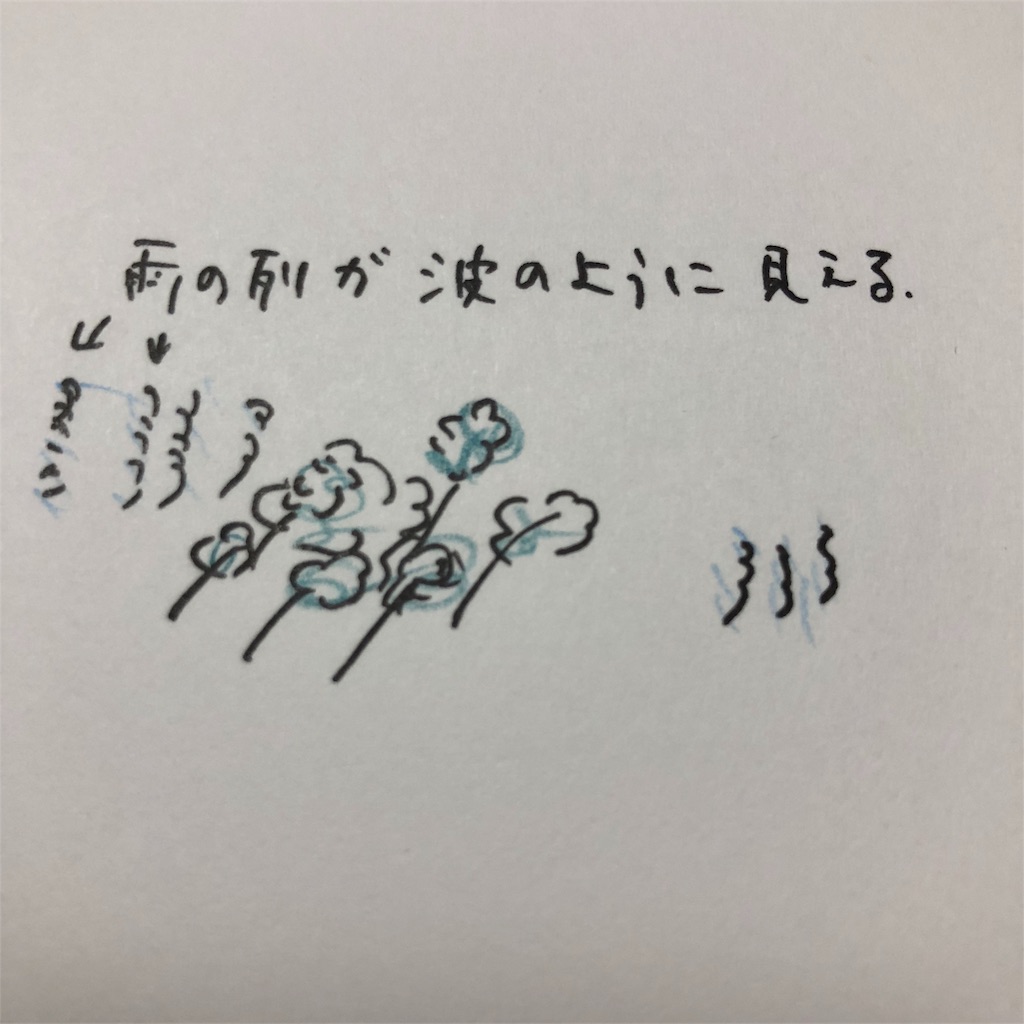 雨の列が波のように見える.